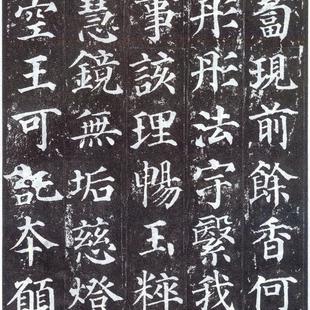 蔔現前餘香何
彤彤法宇繄我
事該理暢玉粹
慧鏡無垢慈燈
空王可託本願